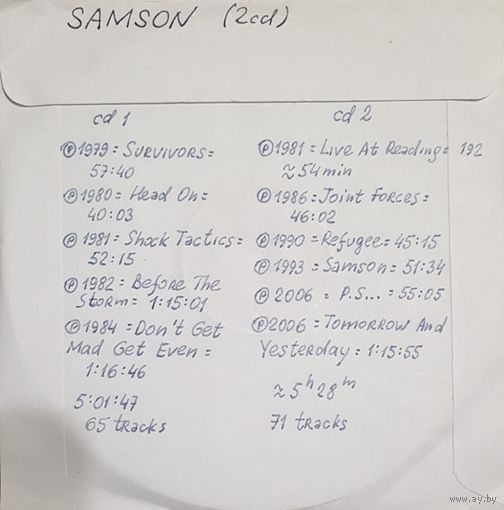 SAMSON (2cd)
cd 1
℗1979 = SURVIVORS =
57:40
℗1980 = Head On =
40:03
℗ 1981 = Shock Tactics =
52:15
℗ 1982 = Before The
Storm = 1:15:01
℗1984 = Don't Get
Mad Get Even =
1:16:46
5:01:47
65 tracks
cd 2
℗1981 = Live At Reading = 192
≈ 54 min
℗1986 = Joint Forces =
46:02
℗1990 = Refugee = 45:15
℗1993 = Samson = 51:34
℗ 2006 = P.S... = 55:05
℗2006 = Tomorrow And
Yesterday = 1:15:55
≈ 5h 28m
71 tracks
www.ay.by